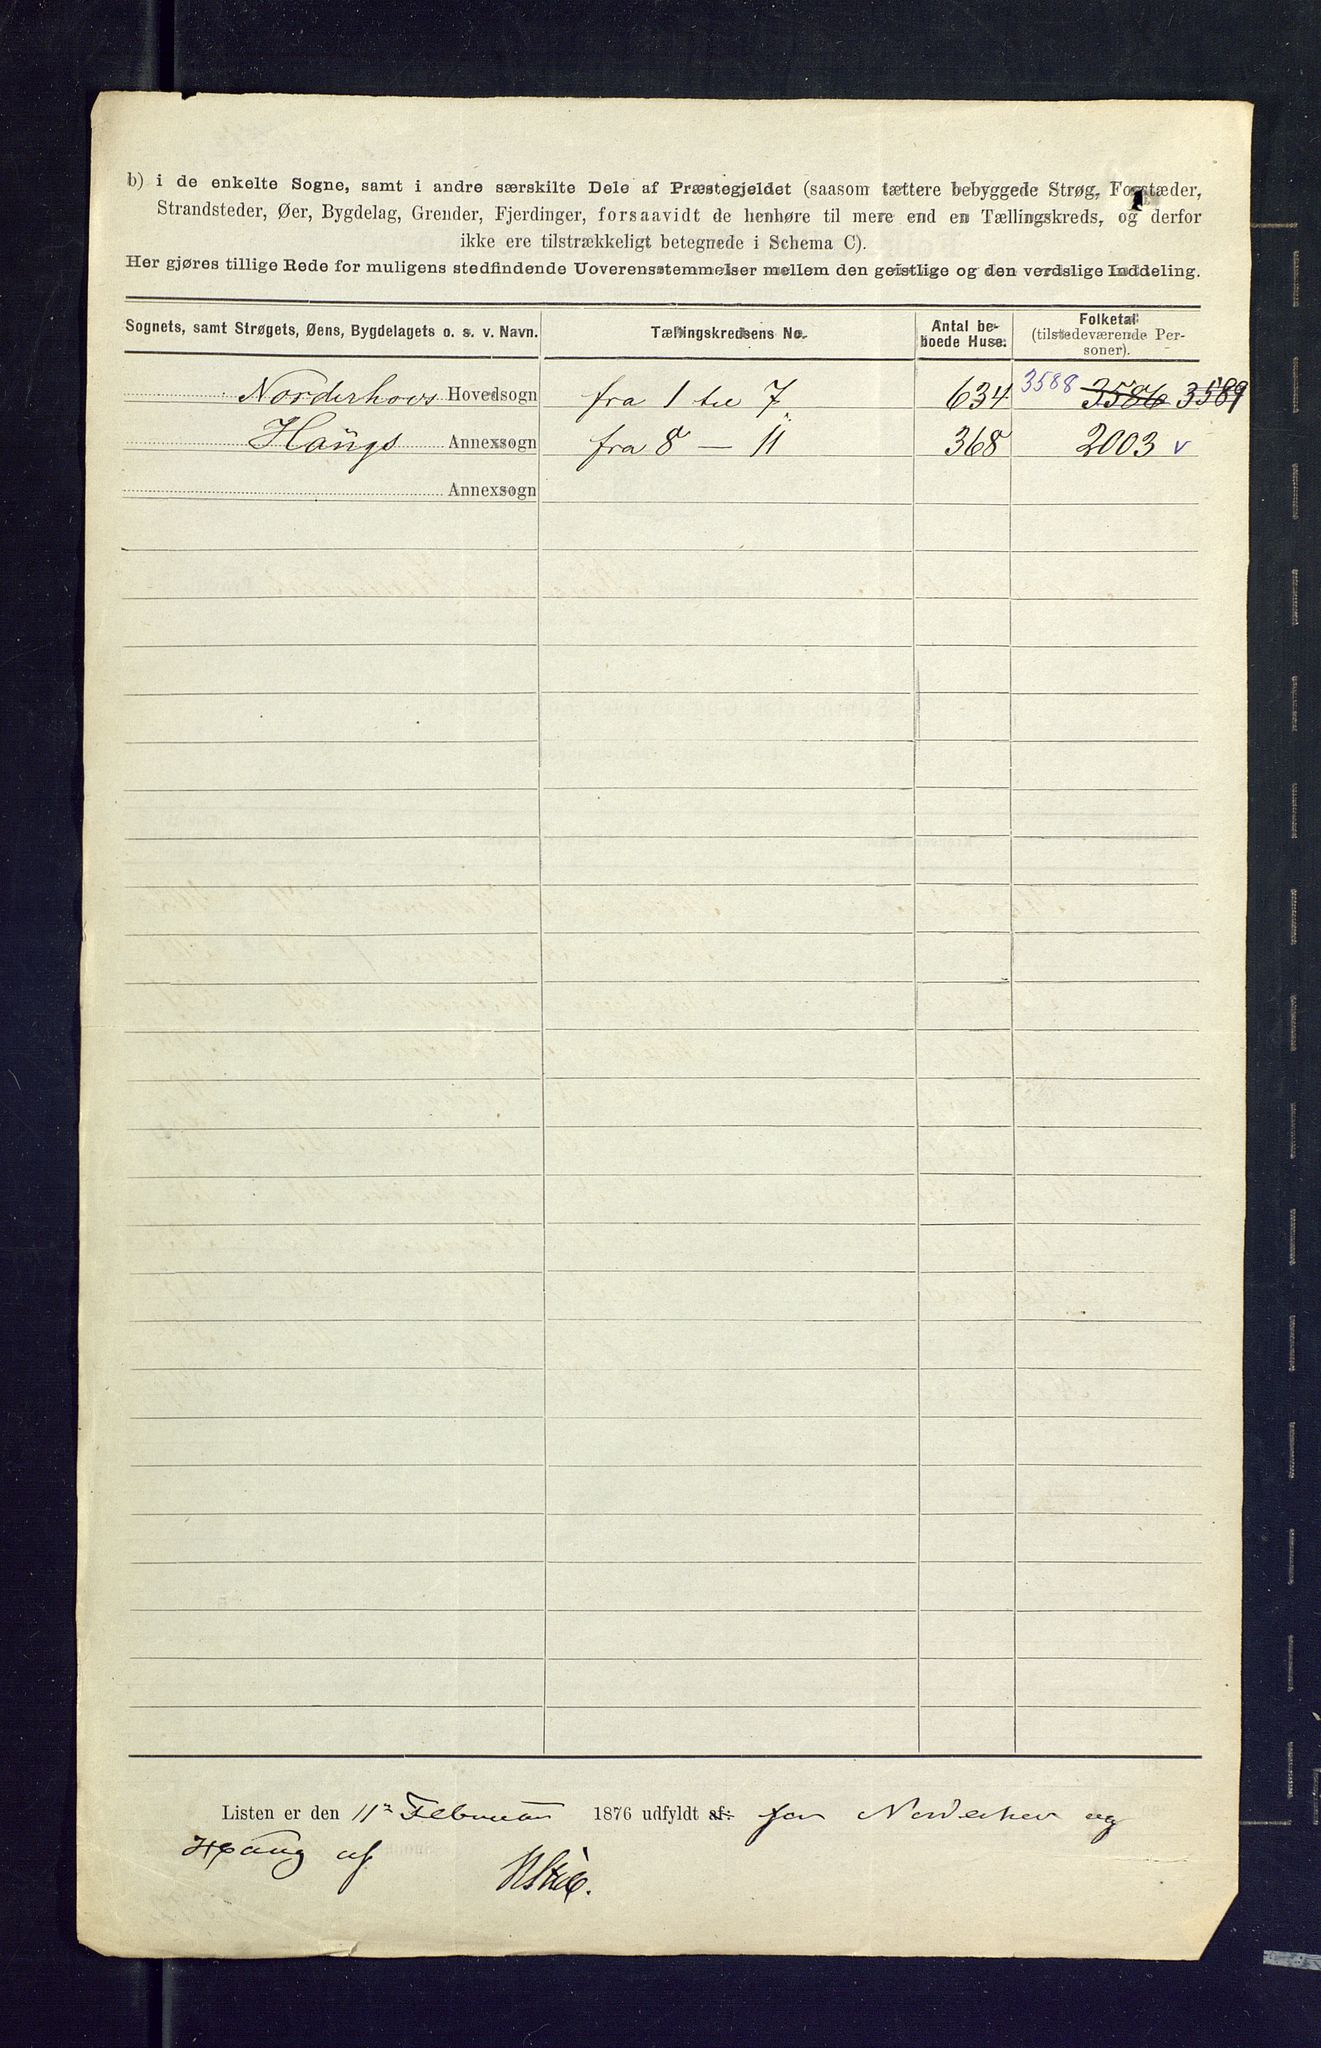 b) i de enkelte Sogne, samt i andre særskilte Dele af Præstegjeldet (saasom tættere bebyggede Strøg, Forstæder,
Strandsteder, Øer, Bygdelag, Grender, Fjerdinger, forsaavidt de henhøre til mere end en Tællingskreds, og derfor
ikke ere tilstrækkeligt betegnede i Schema C).
Her gjøres tillige Rede for muligens stedfindende Uoverensstemmelser mellem den geistlige og den verdslige Inddeling.
Sognets, samt Strøgets, Øens, Bygdelagets o. s. v. Navn. Tællingskredsens No. Antal be-boede Huse. Folketal (tilstedeværende Per-soner).
Norderhovs Hovedsogn fra 1 til 7 634 3588 3586 3589
Haugs Annexsogn fra 8 — 11 368 2003 v
Annexsogn
Listen er den 11te Februar 1876 udfyldt af: for Norderhov og
Haug af